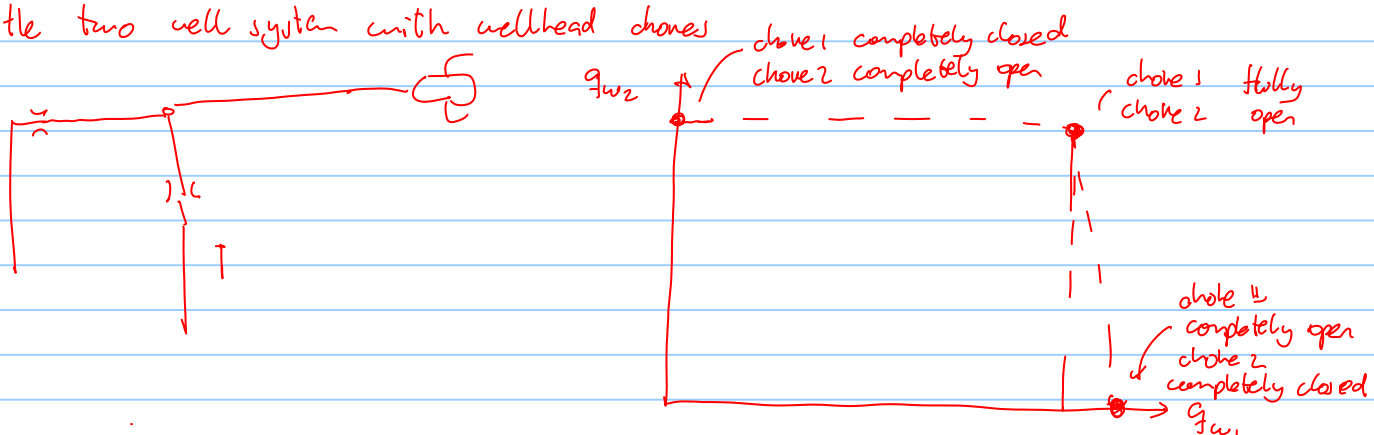 the two well system with wellhead chokes
choke 1 completely closed
choke 2 completely open
qw2
choke 1 fully
choke 2 open
choke 1
completely open
choke 2
completely closed
qw1